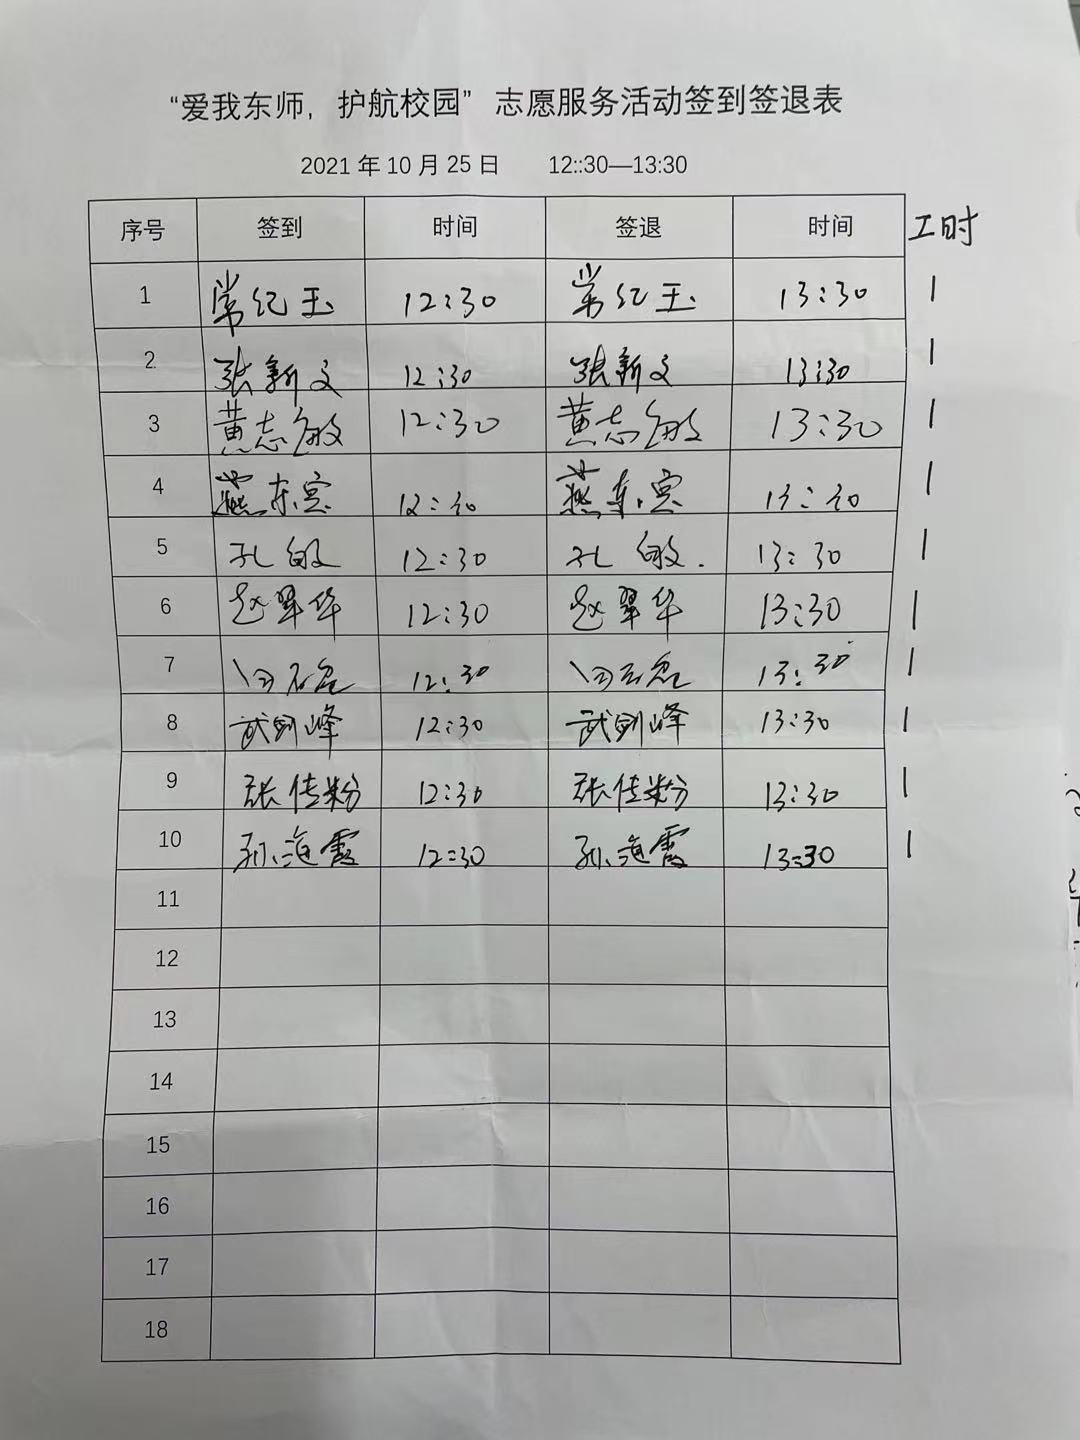 “爱我东师，护航校园” 志愿服务活动签到签退表
2021 年 10 月 25 日 12::30—13:30
序号 签到 时间 签退 时间 工时
1 常纪玉 12:30 常纪玉 13:30 1
2 张新文 12:30 张新文 13:30 1
3 黄志敏 12:30 黄志敏 13:30 1
4 燕东宾 12:30 燕东宾 13:30 1
5 孔敏 12:30 孔敏. 13:30 1
6 赵翠华 12:30 赵翠华 13:30 1
7 12:30 13:30 1
8 武剑峰 12:30 武剑峰 13:30 1
9 张佳粉 12:30 张佳粉 13:30 1
10 孙海霞 12:30 孙海霞 13:30 1
11
12
13
14
15
16
17
18